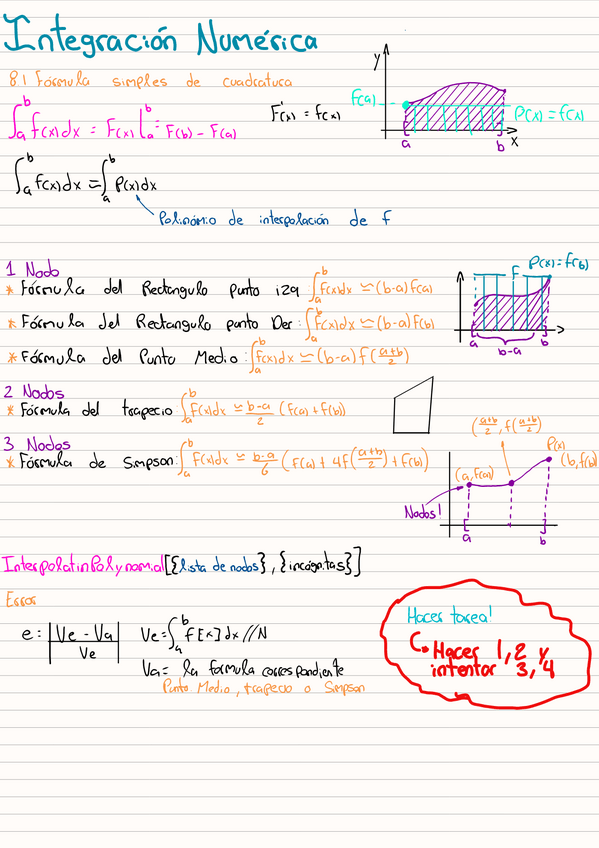 Integración Numérica
8.1 Fórmula simples de cuadratura
∫_a^b f(x)dx = F(x)|_a^b = F(b) - F(a)
F'(x) = f(x)
y
f(a)
P(x) = f(a)
a
b
x
∫_a^b f(x)dx = ∫_a^b P(x)dx
Polinomio de interpolación de f
1 Nodo
* Fórmula del Rectangulo punto izq ∫_a^b f(x)dx ≃ (b-a)f(a)
* Fórmula del Rectangulo punto Der: ∫_a^b f(x)dx ≃ (b-a)f(b)
* Fórmula del Punto Medio: ∫_a^b f(x)dx ≃ (b-a)f((a+b)/2)
P(x) = f(b)
F
a
b
b-a
2 Nodos
* Fórmula del trapecio ∫_a^b f(x)dx ≃ (b-a)/2 (f(a) + f(b))
3 Nodos
* Fórmula de Simpson: ∫_a^b f(x)dx ≃ (b-a)/6 (f(a) + 4f((a+b)/2) + f(b))
((a+b)/2, f((a+b)/2))
P(x)
(a, f(a))
(b, f(b))
Nodos!
a
b
InterpolatinPolynomial[{lista de nodos}, {incógnitas}]
Error
e: |Ve - Va / Ve|
Ve = ∫_a^b f[x] dx //N
Va = la formula correspondiente
Punto Medio, trapecio o Simpson
Hacer tarea!
Hacer 1, 2 y
intentar 3, 4